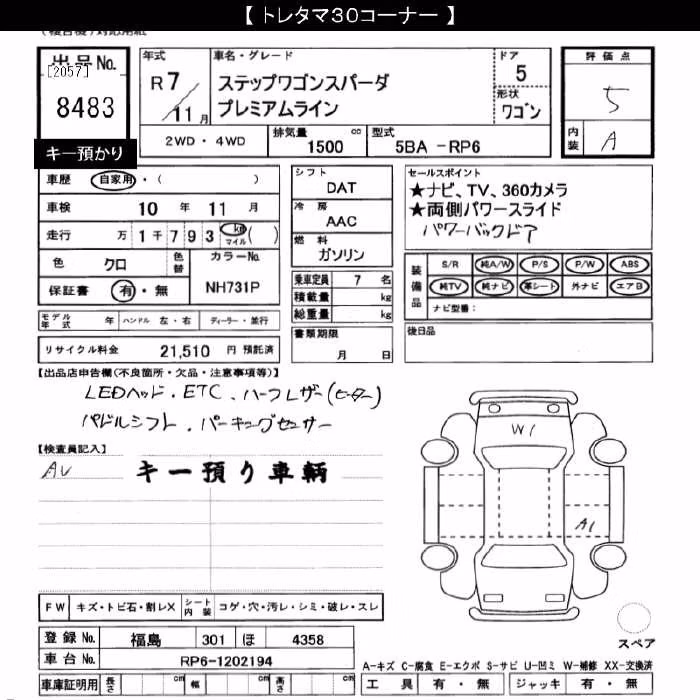 【 トレタマ30コーナー 】
出品No.
[2057]
8483
キー預かり
年式
R 7 / 11 月
車名・グレード
ステップワゴンスパーダ
プレミアムライン
ドア
5
形状
ワゴン
評価点
5
内装 A
2WD・4WD
排気量 1500 cc
型式 5BA -RP6
車歴 自家用・( )
車検 10 年 11 月
走行 万 1 千 7 9 3 km マイル ( )
色 クロ
色替
カラーNo. NH731P
保証書 有・無
シフト
DAT
冷房
AAC
燃料
ガソリン
乗車定員 7 名
積載量 kg
総重量 kg
書類期限
月 日
セールスポイント
★ナビ、TV、360カメラ
★両側パワースライド
パワーバックドア
装備品
S/R 純A/W P/S P/W ABS
純TV 純ナビ 革シート 外ナビ エアB
ナビ型番:
後日品
モデル年式 年 ハンドル 左・右 ディーラー・並行
リサイクル料金 21,510 円 預託済
【出品店申告欄(不良箇所・欠品・注意事項等)】
LEDヘッド.ETC、ハーフレザー(ヒーター)
パドルシフト、パーキングセンサー
【検査員記入】
AU
キー預り車輌
W1
A1
スペア
FW キズ・トビ石・割レX
シート内装 コゲ・穴・汚レ・シミ・破レ・スレ
登録No. 福島 301 ほ 4358
車台No. RP6-1202194
車庫証明用 長さ cm 幅 cm 高さ cm
A-キズ C-腐食 E-エクボ S-サビ U-凹ミ W-補修 XX-交換済
工具 有・無 ジャッキ 有・無